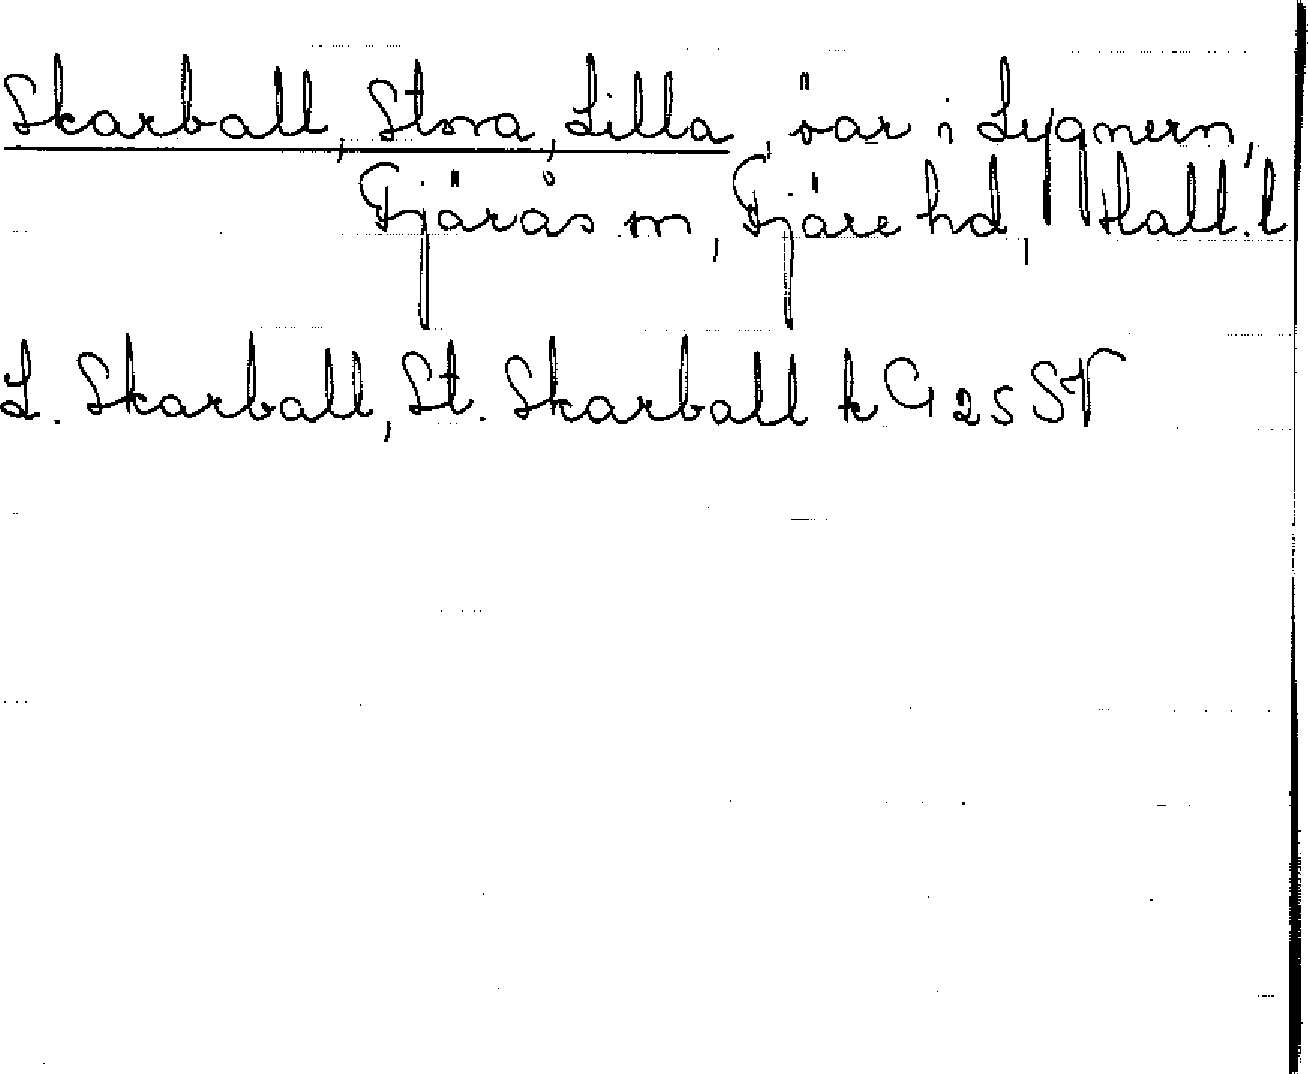 Skarball, Stora, Lilla, öar i Lygnern,
Fjärås sn, Fjäre hd, Hall. l
L. Skarball, St. Skarball k G 25 SV